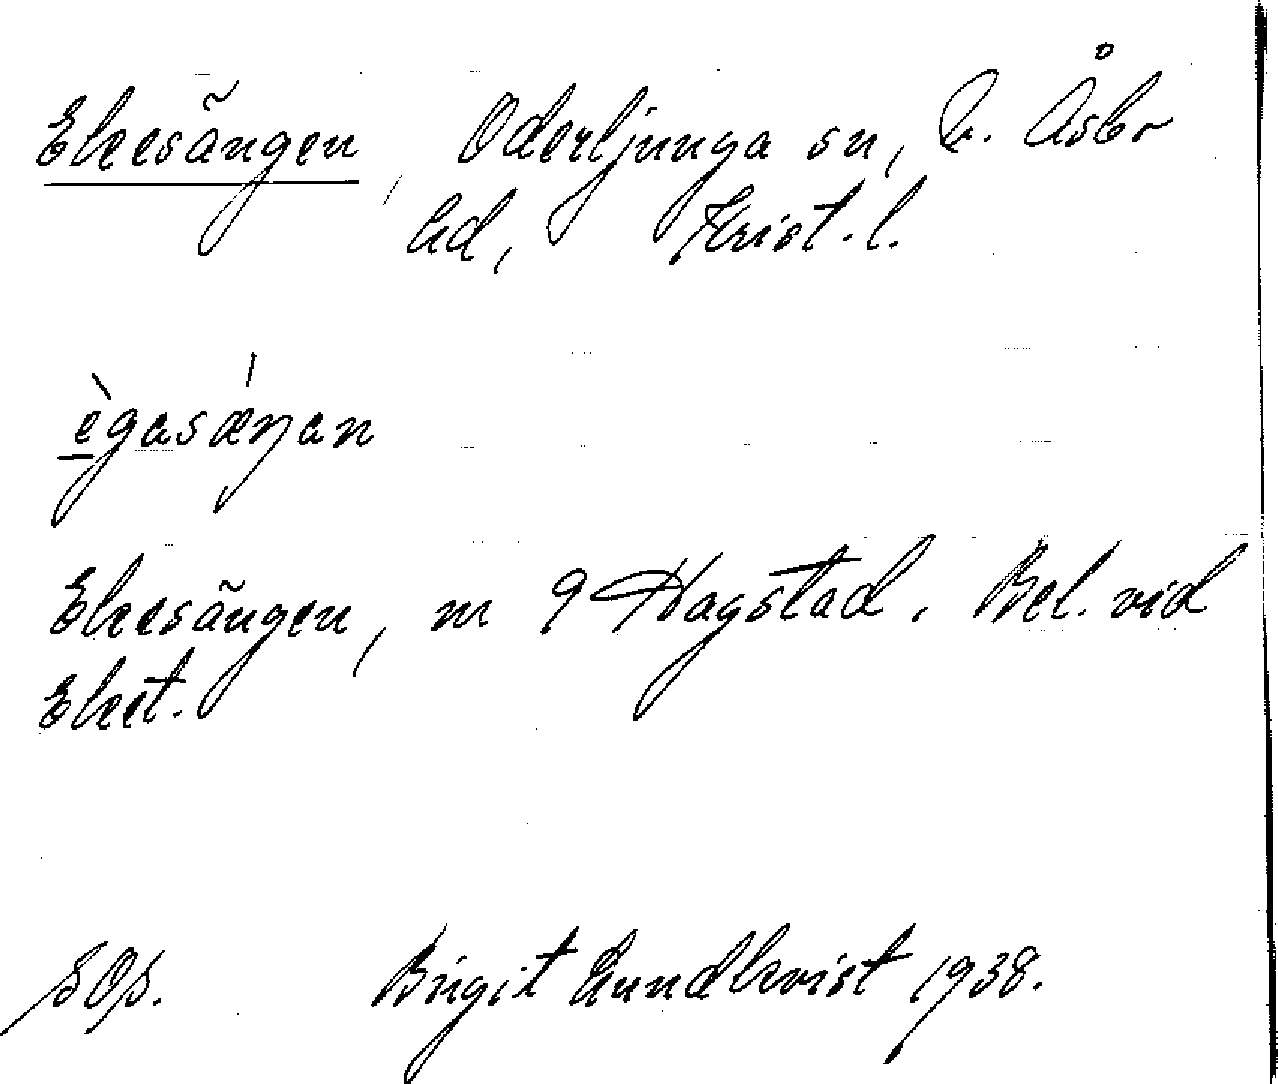 Ekesängen, Oderljunga sn, N. Åsbo
hd, Krist. l.
ègasæŋan
Ekesängen, m 9 Hagstad. Bel. vid
Eket.
SOp. Birgit Lundkvist 1938.